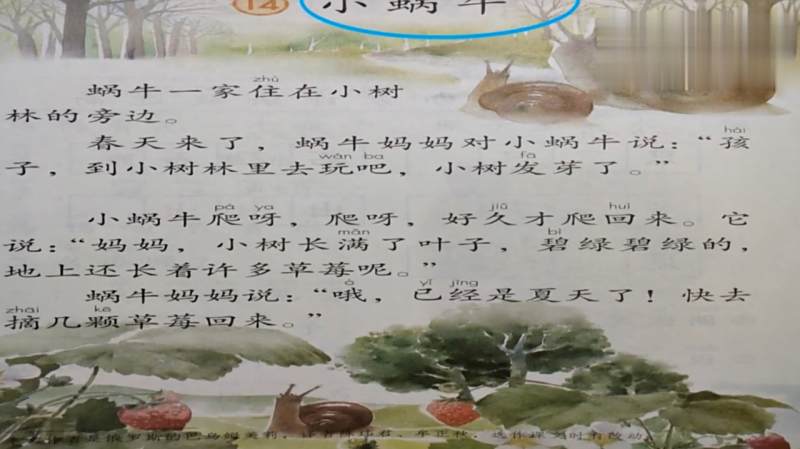 14 小蜗牛
zhù
蜗牛一家住在小树
林的旁边。
hái
春天来了，蜗牛妈妈对小蜗牛说：“孩
wán ba fā
子，到小树林里去玩吧，小树发芽了。”
pá ya jiǔ huí
小蜗牛爬呀，爬呀，好久才爬回来。它
mǎn bì
说：“妈妈，小树长满了叶子，碧绿碧绿的，
地上还长着许多草莓呢。”
ò yǐ jīng
蜗牛妈妈说：“哦，已经是夏天了！快去
zhāi kē
摘几颗草莓回来。”
作者是俄罗斯的
选作课文时有改动。